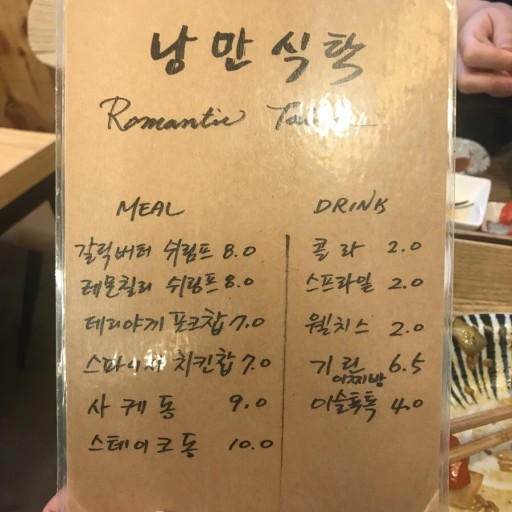 낭만식탁
Romantic
MEAL
갈릭버터 쉬림프 8.0
레몬칠리 쉬림프 8.0
테리야끼 포크찹 7.0
스파이시 치킨찹 7.0
사케동 9.0
스테이크동 10.0
DRINK
콜라 2.0
스프라일 2.0
웰치스 2.0
기린 6.5
이찌방
이슬톡톡 4.0